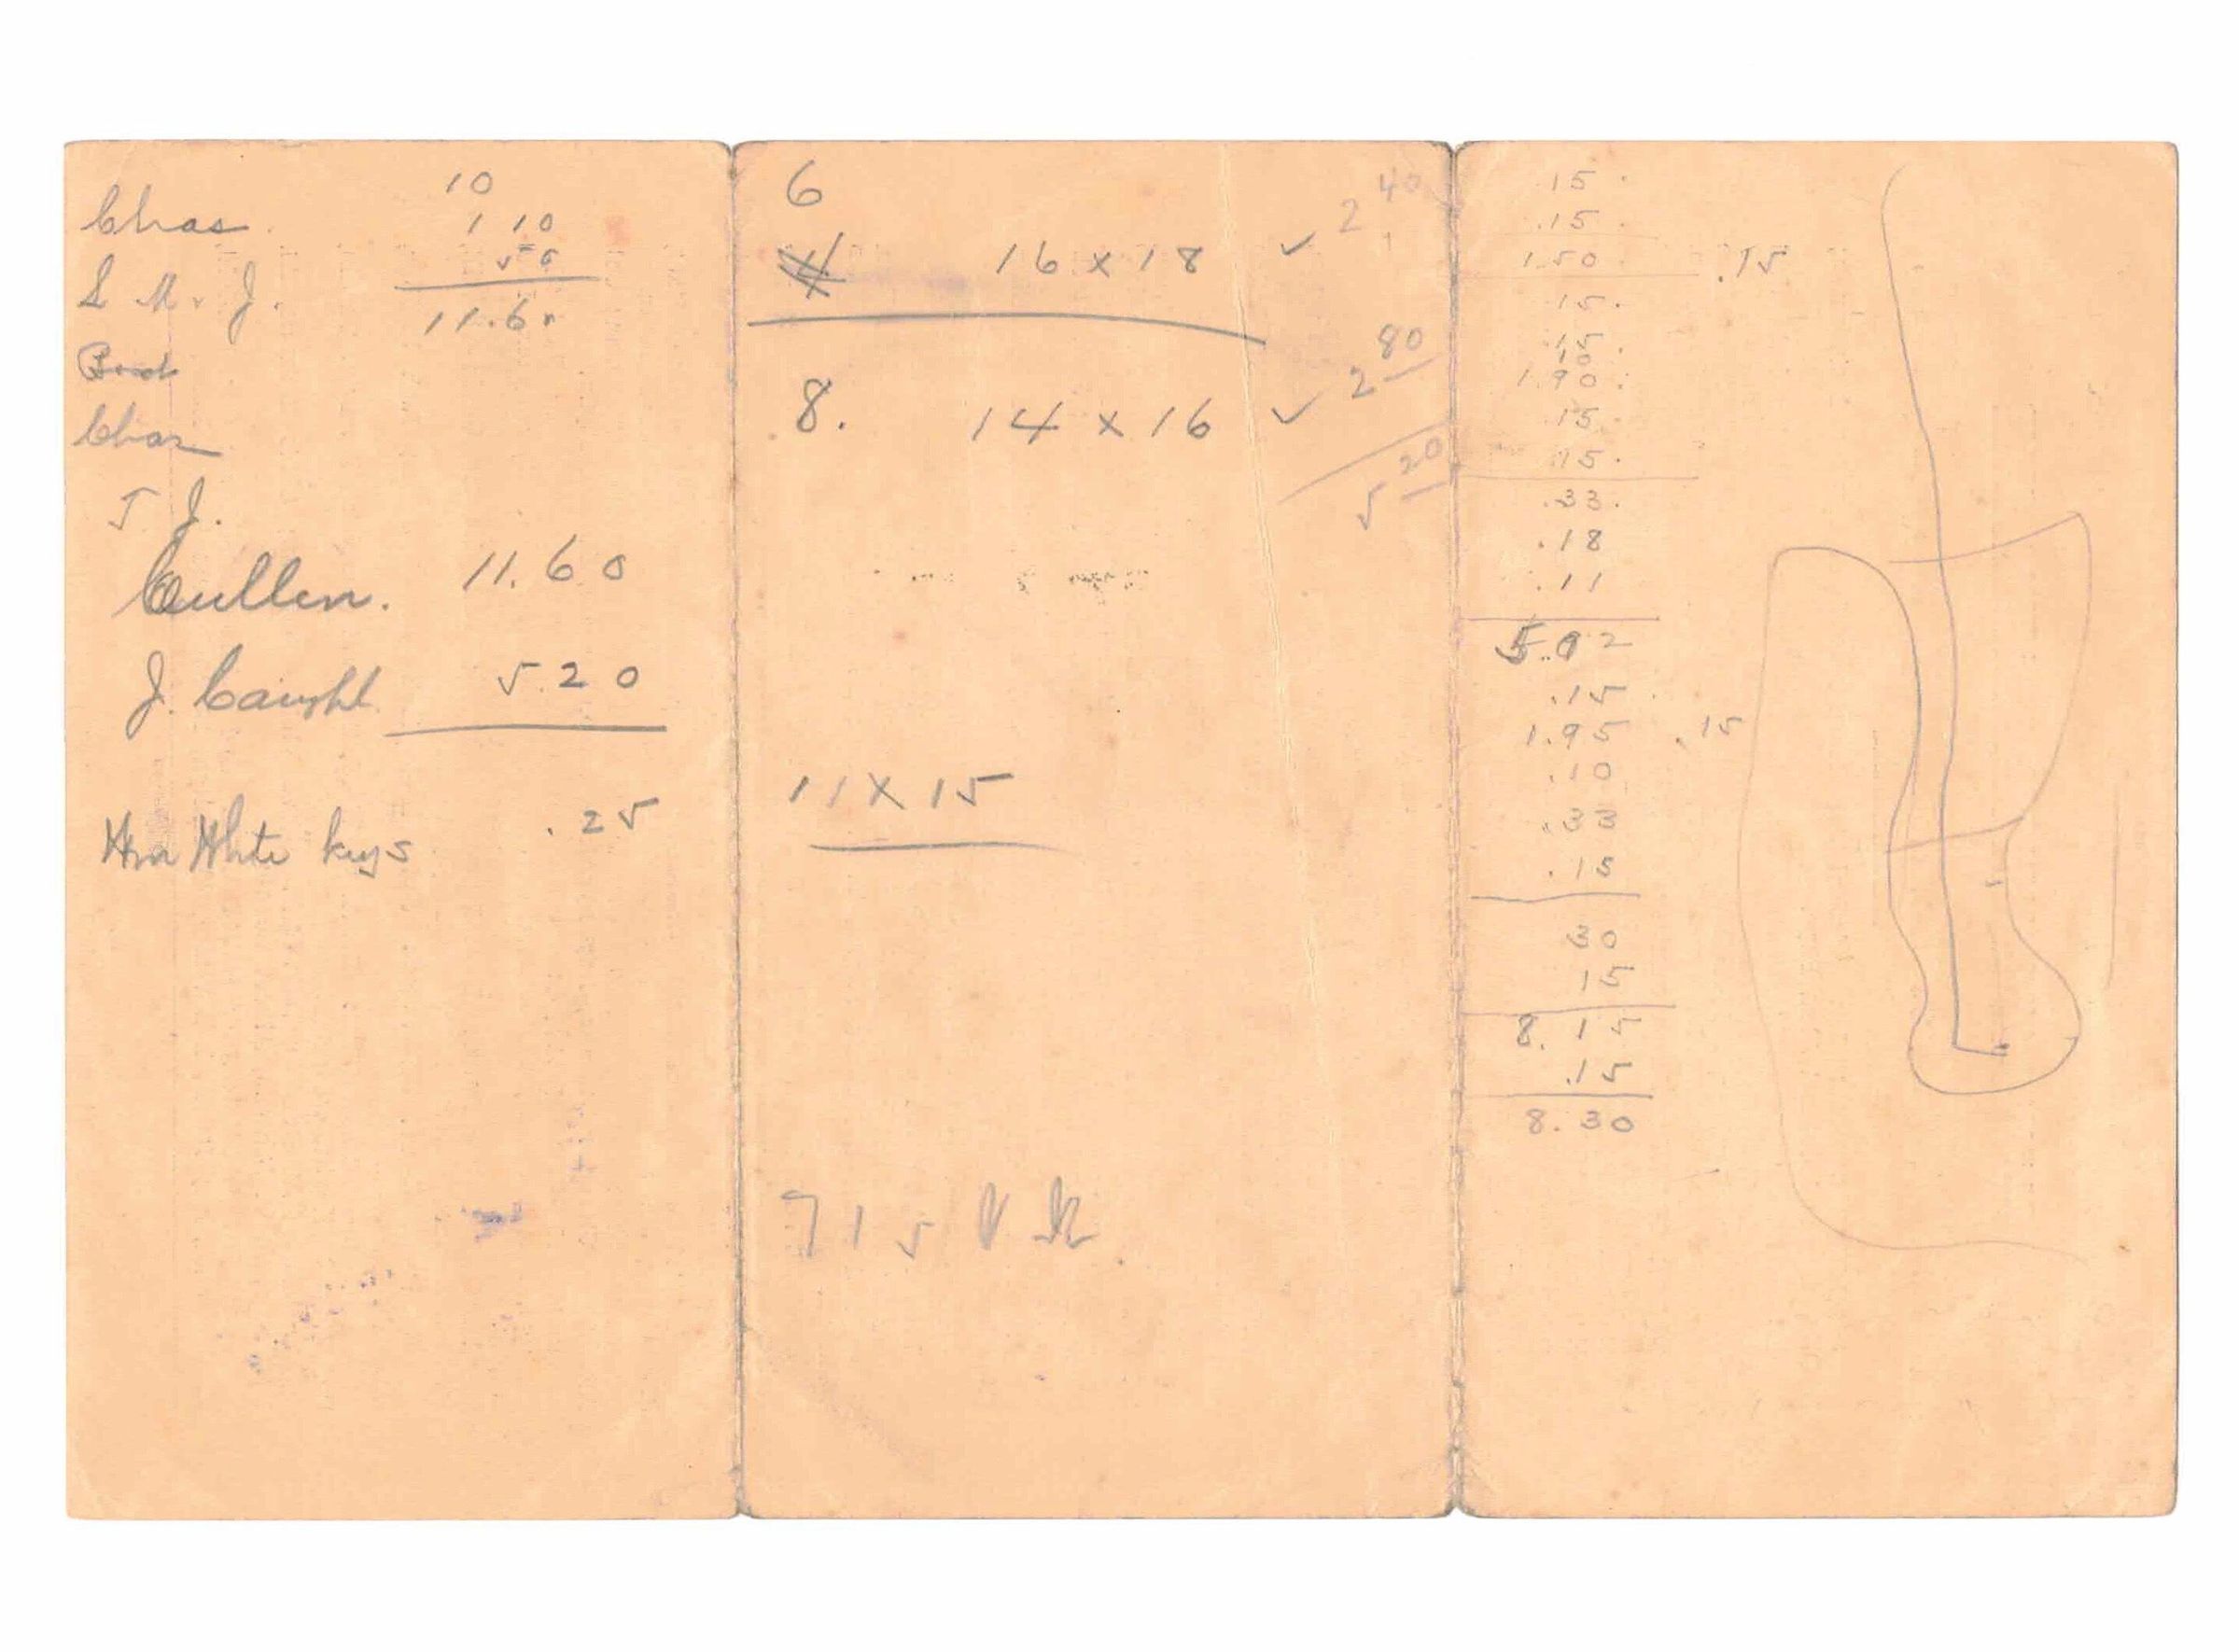 10
Chas. 1 10
50
S M. J.
11.60
Chas
T J.
Cullen. 11.60
J. 5.20
White keys .25
6
16 x 18 ✓ 2 40
8. 14 x 16 ✓ 2 80
5 20
11 x 15
7 1 5
15.
.15.
1.50. .15
15.
15.
10
1.90.
15.
15.
.33.
.18
.11
5.92
.15
1.95 .15
.10
.33
.15
30
15
8.15
.15
8.30